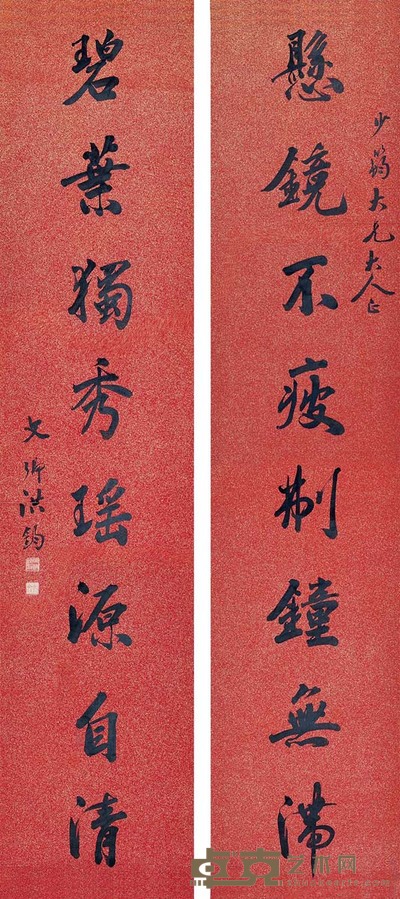 懸鏡不疲制鐘無滯
少大兄大人正
碧葉獨秀瑤源自清
文卿洪鈞
艺术网